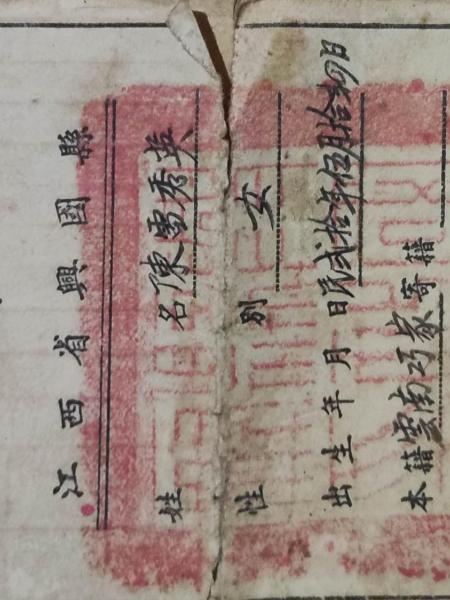 江西省興國縣
姓名 陳雷秀英
性別 女
出生年月日 民貳拾年伍月拾 日
本籍 雲南巧家 寄籍